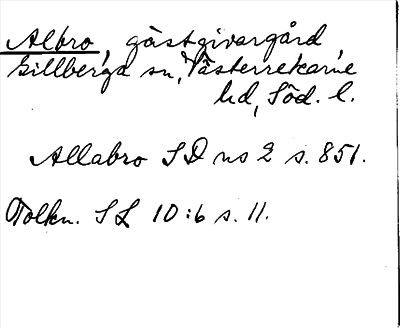 Albro, gästgivargård,
Gillberga sn, Västerrekarne
hd, Söd. l.
Allabro SD ns 2 s. 851.
Tolkn. SL 10:6 s. 11.